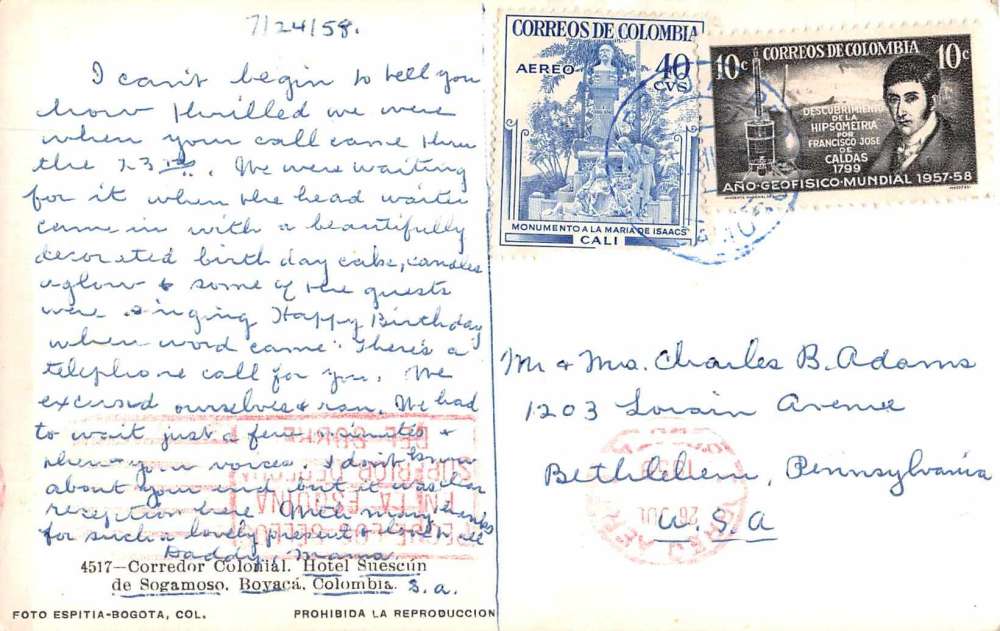 7/24/58.
I can't begin to tell you
how thrilled we were
when your call came thru
the 23rd. We were waiting
for it when the head waiter
came in with a beautifully
decorated birthday cake, candles
aglow & some of the guests
were singing Happy Birthday
when word came "There's a
telephone call for you. We
excused ourselves & ran. We had
to wait just a few minutes &
then your voices. I don't know
about your end but it was
reception here. With many thanks
for such a lovely present & love to all
Daddy & Mama
4517—Corredor Colonial. Hotel Suescún
de Sogamoso. Boyacá, Colombia. S.A.
FOTO ESPITIA-BOGOTA, COL. PROHIBIDA LA REPRODUCCION
CORREOS DE COLOMBIA
AEREO 40 CVS
MONUMENTO A LA MARIA DE ISAACS
CALI
CORREOS DE COLOMBIA
10c 10c
DESCUBRIMIENTO
DE LA
HIPSOMETRIA
POR
FRANCISCO JOSE
DE
CALDAS
1799
AÑO·GEOFISICO·MUNDIAL 1957-58
Mr & Mrs. Charles B. Adams
1203 Lorain Avenue
Bethlehem, Pennsylvania
U.S.A
PEGUE LOS SELLOS
EN LA ESQUINA
SUPERIOR DERECHA
DEL SOBRE
26 JUL